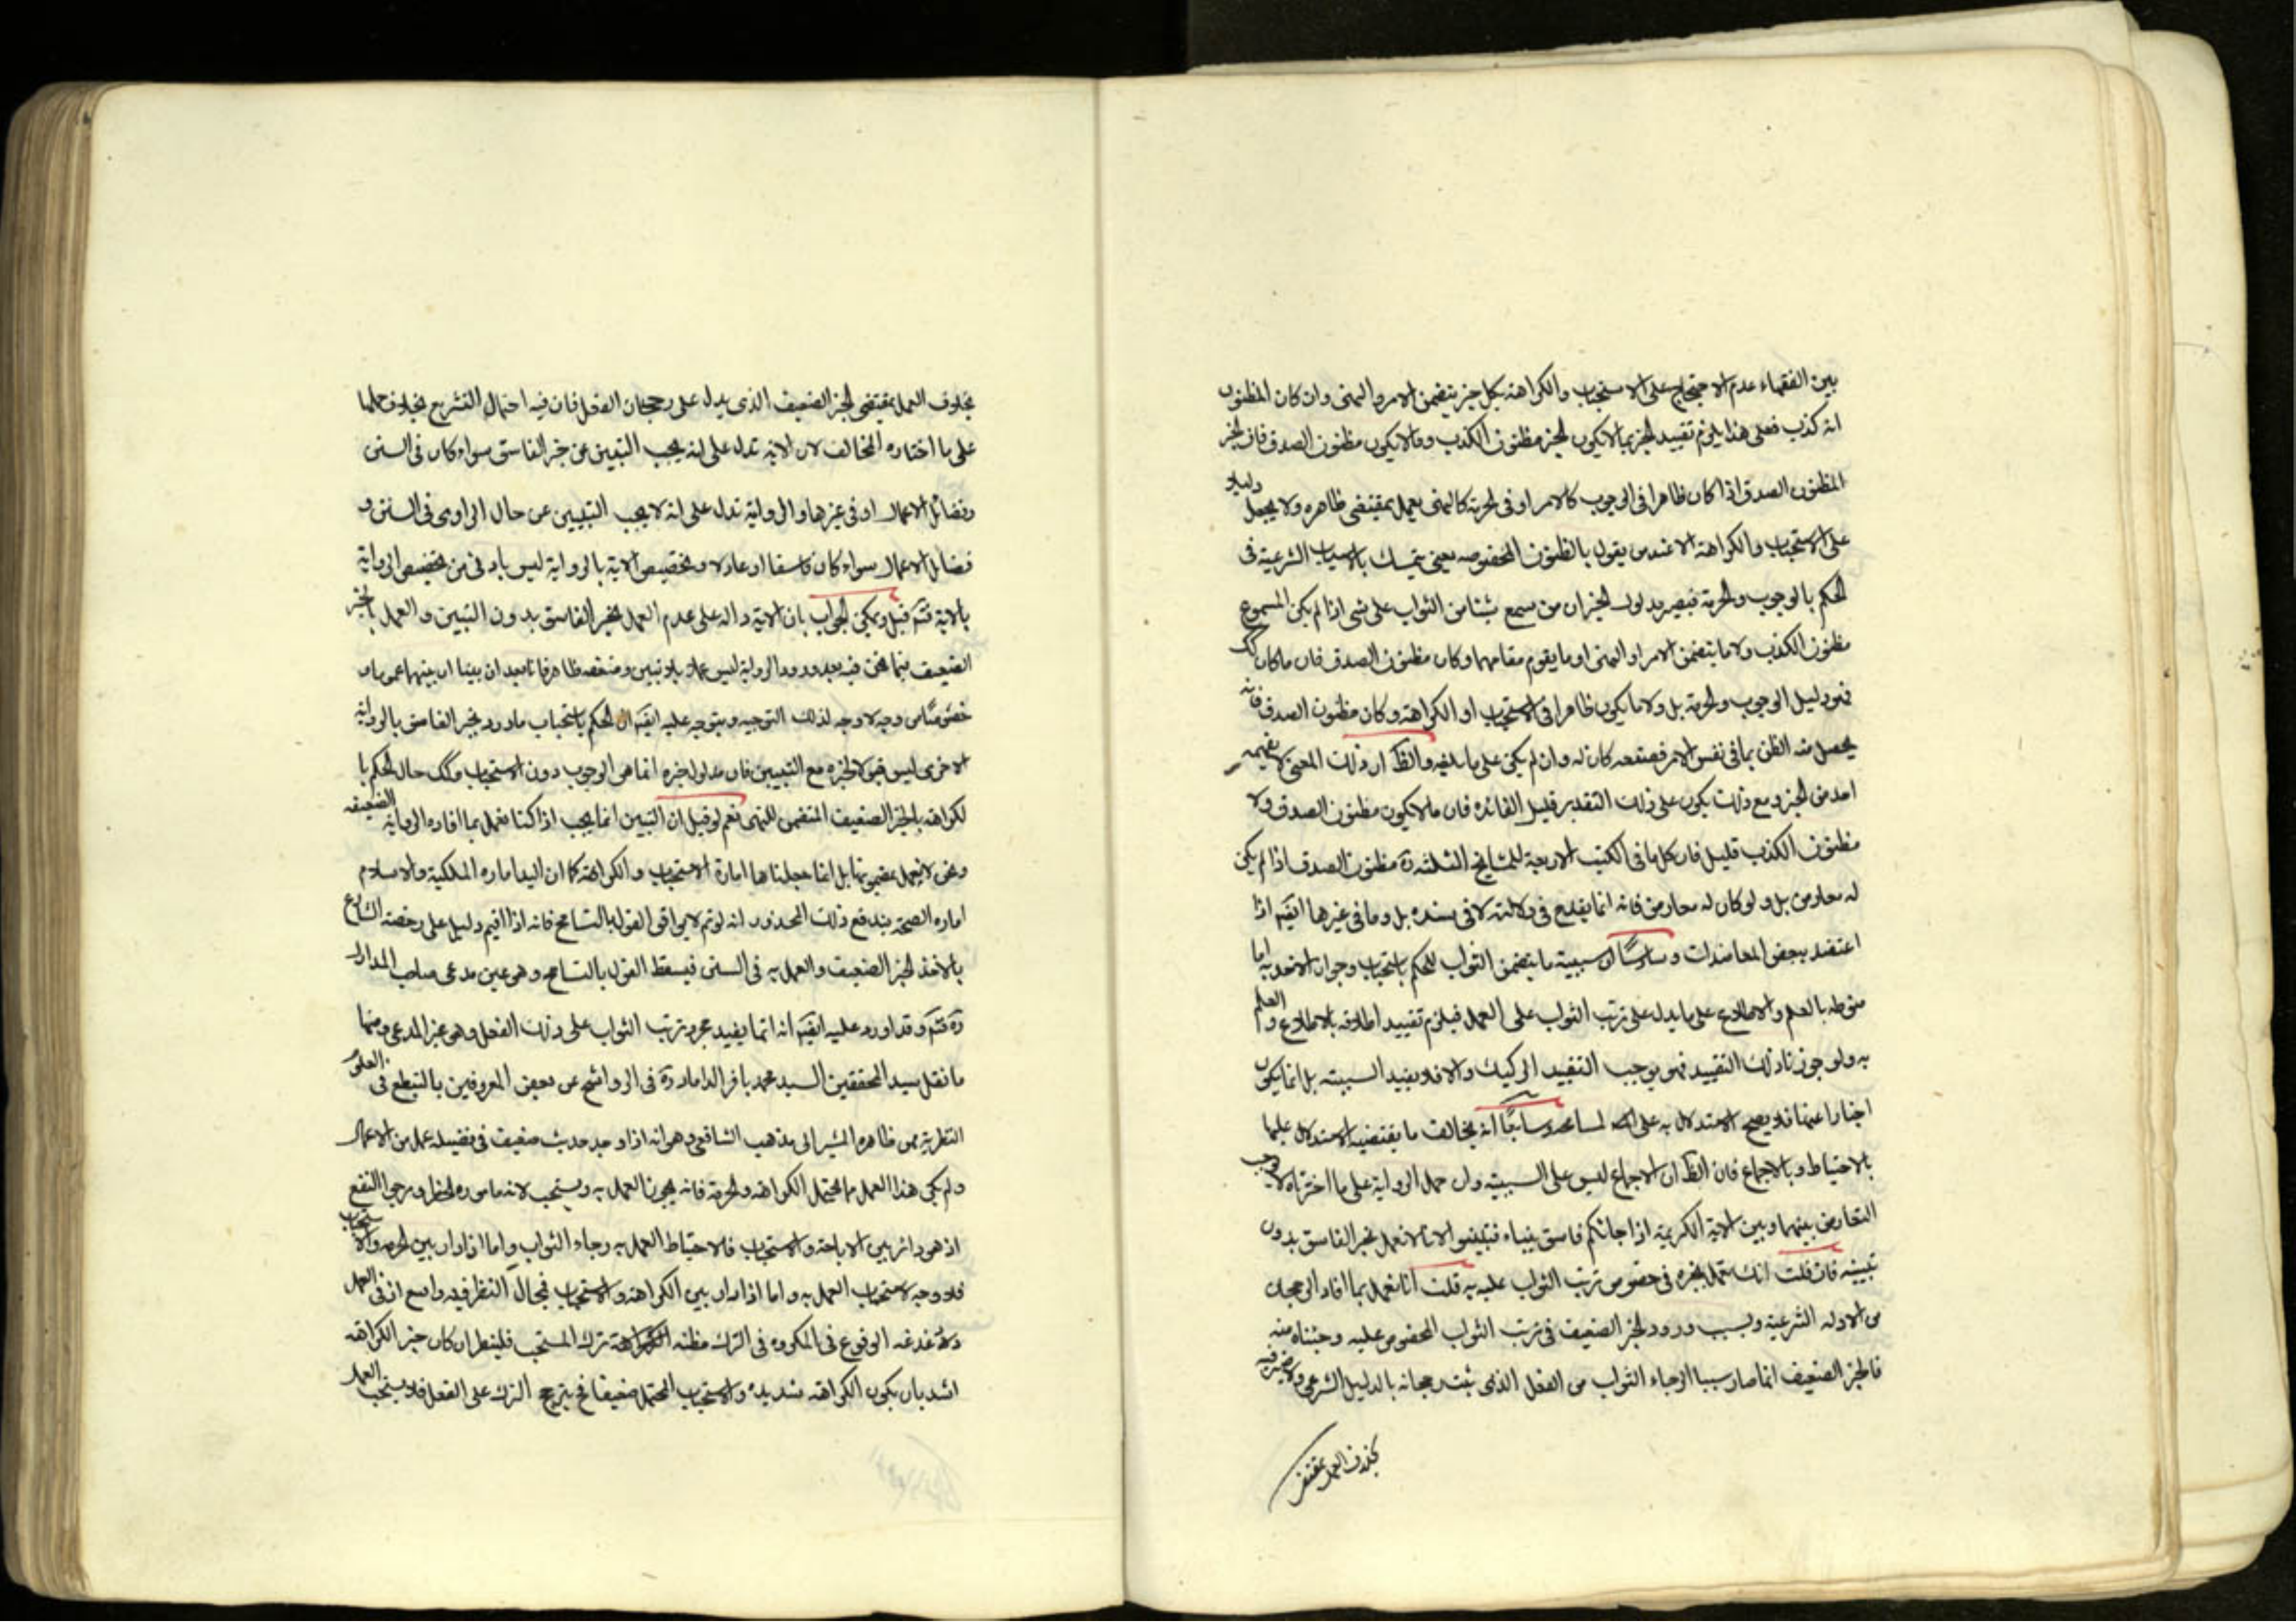 بين الفقهاء عدم الاحتجاج على الاستحباب والكراهة بكل خبر يتضمن الامر والنهى وان كان المظنون
انه كذب فعلى هذا يلزم تقييد الخبر بما لا يكون الخبر مظنون الكذب وما لا يكون مظنون الصدق فان الخبر
المظنون الصدق اذا كان ظاهرا فى الوجوب كالامر او فى الحرمة كالنهى يعمل بمقتضى ظاهره ولا يجعل دليلا
على الاستحباب والكراهة الا عند من يقول بالظنون المخصوصه يعنى يتمسك بالاسباب الشرعية فى
الحكم بالوجوب والحرمة فيصير مدلول الخبر ان من سمع شيئا من الثواب على شى اذا لم يكن المسموع
مظنون الكذب ولا ما يتضمن الامر او النهى او ما يقوم مقامهما وكان مظنون الصدق فان ما كان كك
فهو دليل الوجوب والحرمة بل ولا ما يكون ظاهرا فى الاستحباب او الكراهة وكان مظنون الصدق فانه
يحصل منه الظن بما فى نفس الامر فصنعه كان له وان لم يكن على ما بلغه والظ ان ذلك المعنى لا يفهمه
احد من الخبر ومع ذلك يكون على ذلك التقدير قليل الفائده فان ما لا يكون مظنون الصدق ولا
مظنون الكذب قليل فان كل ما فى الكتب الاربعة للمشايخ الثلثة ره مظنون الصدق اذا لم يكن
له معارض بل ولو كان له معارض فانه انما يقدح فى دلالته لا فى سنده بل وما فى غيرها ايضا اذا
اعتضد ببعض المعاضدات وسادسًا ان سببية ما يتضمن الثواب للحكم باستحباب وجواز الاخذ به اما
منوطه بالعلم والاطلاع على ما يدل على ترتب الثواب على العمل فيلزم تقييد اطلاقه بالاطلاع والعلم
به ولو جوزنا ذلك التقييد فهو يوجب التقييد الركيك والا فلا يفيد السببية بل انما يكون
اخبارا عنها فلا يصح الاستدلال به على المسامحه وسابعًا انه يخالف ما يقتضيه الاستدلال عليها
بالاحتياط وبالاجماع فان الظ ان الاجماع ليس على السببية وان حمل الرواية على ما اخترناه لا يوجب
التعارض بينهما وبين الاية الكريمة اذا جائكم فاسق بنباء فتبينوا الانا لا نعمل بخبر الفاسق بدون
تبينه فان قلت انك تعمل بخبره فى خصوص ترتب الثواب عليه به قلت انا نعمل بما افاد الرجحان
من الادله الشرعية وبسبب ورود الخبر الضعيف فى ترتب الثواب المخصوص عليه وجئناه منه
فالخبر الضعيف انما صار سببا لرجاء الثواب من الفعل الذى ثبت رجحانه بالدليل الشرعى ولا ضير فيه
بخلاف العمل بمقتضى
بخلاف العمل بمقتضى الخبر الضعيف الذى يدل على رجحان الفعل فان فيه احتمال التشريع بخلاف حملها
على ما اختاره المخالف لان الاية تدل على انه يجب التبيين عن خبر الفاسق سواء كان فى السنن
وفضائل الاعمال او فى غيرها والرواية تدل على انه لا يجب التبيين عن حال الراوى فى السنن و
فضايل الاعمال سواء كان فاسقا او عادلا وتخصيص الاية بالرواية ليس باولى من تخصيص الرواية
بالاية فتم قيل ويمكن الجواب بان الاية داله على عدم العمل بخبر الفاسق بدون التبيين والعمل بالخبر
الضعيف فيما نحن فيه بعد ورود الرواية ليس عملا بلا تبيين وضعفه ظاهر فانا بعد ان بينا ان بينهما عموما و
خصوصًا من وجه لا وجه لذلك التوجيه ويتوجه عليه ايضا ان الحكم باستحباب ما ورد بخبر الفاسق بالرواية
الاخرى ليس قبولا لخبره مع التبيين فان مدلول خبره انما هى الوجوب دون الاستحباب وكك حال الحكم با
لكراهه بالخبر الضعيف المتضمن للنهى نعم لو قيل ان التبيين انما يجب اذا كنا نعمل بما افاده الرواية الضعيفه
ونحن لا نعمل بمضمونها بل انما جعلناها امارة الاستحباب والكراهة كما ان اليد اماره الملكية والاسلام
اماره الصحة يندفع ذلك المحذور لانه لو تم لا يوافق القول بالتسامح فانه اذا اقيم دليل على رخصة الشارع
بالاخذ بخبر الضعيف والعمل به فى السنن فيسقط القول بالتسامح وهو عين مدعى صاحب المدارك
ره فتم وقد اورد عليه ايضا انه انما يفيد مجرد ترتب الثواب على ذلك الفعل وهو غير المدعى ومنها
ما نقل سيد المحققين السيد محمد باقر الداماد ره فى الرواشح عن بعض المعروفين بالتبطع فى العلوم
النظرية ممن ظاهره المشير الى مذهب الشافعى وهو انه اذا وجد حديث ضعيف فى فضيلة عمل من الاعمال
ولم يكن هذا العمل مما يحتمل الكراهة والحرمة فانه يجوز العمل به ويستحب لانه مامون الخطر ومرجى النفع
اذ هو دائر بين الاباحة والاستحباب فالاحتياط العمل به رجاء الثواب واما اذا دار بين الحرمة والاستحباب
فلا وجه لاستحباب العمل به واما اذا دار بين الكراهة والاستحباب فمجال النظر فيه واسع اذ فى العمل
دغدغه الوقوع فى المكروه فى الترك مظنه ترك المستحب فلينظر ان كان خبر الكراهة
اشد بان يكون الكراهة شديده والاستحباب المحتمل ضعيفا فح يترجح الترك على الفعل فلا يستحب العمل